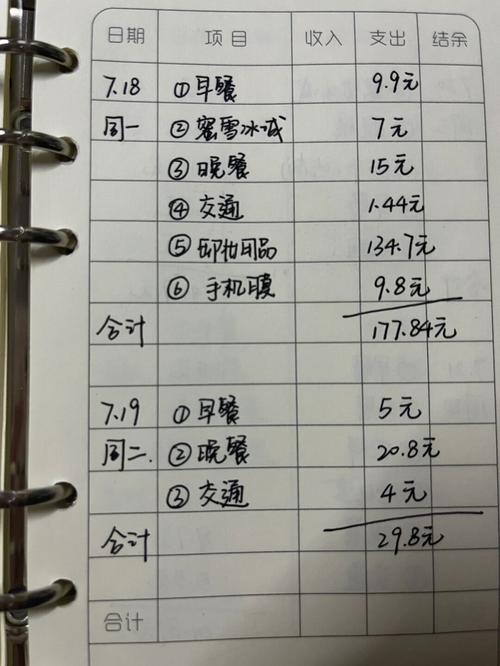 日期 项目 收入 支出 结余
7.18 ①早餐 9.9元
周一 ②蜜雪冰城 7元
③晚餐 15元
④交通 1.44元
⑤卸妆用品 134.7元
⑥手机膜 9.8元
合计 177.84元
7.19 ①早餐 5元
周二. ②晚餐 20.8元
③交通 4元
合计 29.8元
合计